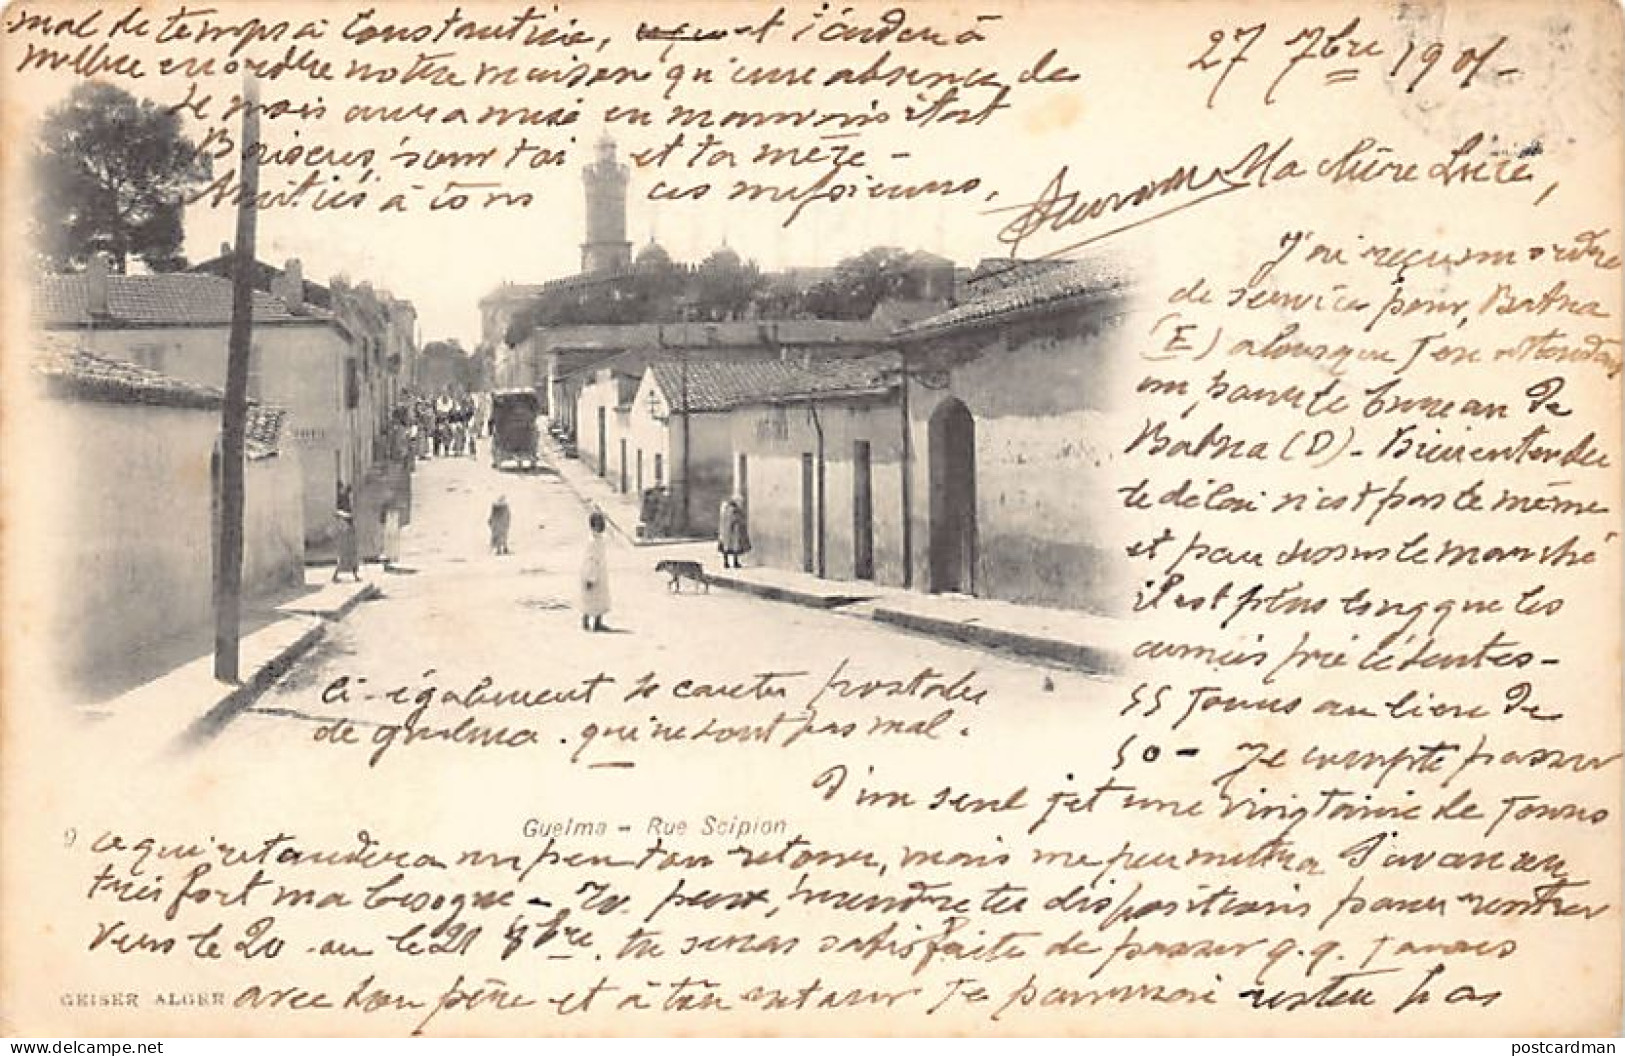 27 7bre 1901-
Ma chère Lucie,
J'ai reçu mon ordre
de service pour Batna
(E) alors que j'en attendais
un pour le bureau de
Batna (D) - Bien entendu
le délai n'est pas le même
et par dessus le marché
il est plus long que les
années précédentes -
55 jours au lieu de
50 - Je compte passer
d'un seul jet une vingtaine de jours
ce qui retardera un peu ton retour, mais me permettra d'avancer
très fort ma besogne - Tu peux prendre tes dispositions pour rentrer
vers le 20 ou le 21 8bre. tu seras satisfaite de passer q.q. jours
avec ton père et à ton retour je pourrai rester pas
mal de temps à Constantine, et j'aiderai à
mettre en ordre notre maison qu'une absence de
mois aura mise en mauvais état
Baisers, pour toi et ta mère -
Amitiés à tous ces messieurs,
Ci-également de cartes postales
de Guelma. qui ne sont pas mal.
9
Guelma - Rue Scipion
GEISER ALGER
delcampe.net
postcardman